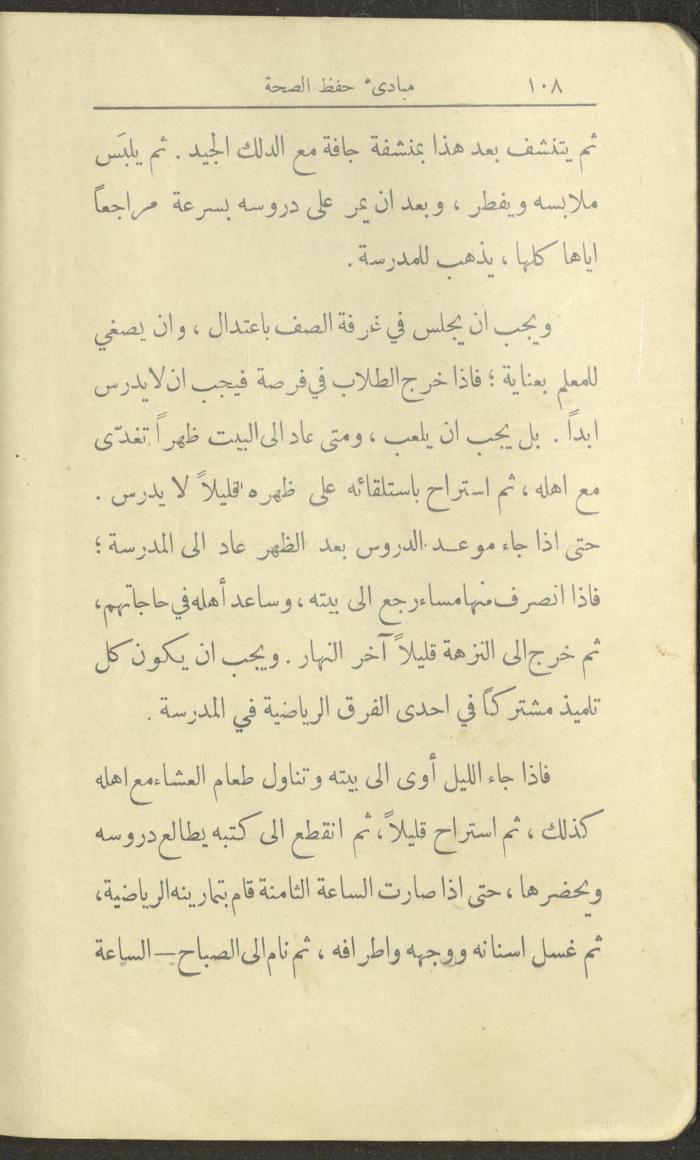 ١٠٨ مبادىء حفظ الصحة
ثم يتنشف بعد هذا بمنشفة جافة مع الدلك الجيد . ثم يلبَس
ملابسه ويفطر ، وبعد ان يمر على دروسه بسرعة مراجعاً
اياها كلها ، يذهب للمدرسة .
ويجب ان يجلس في غرفة الصف باعتدال ، وان يصغي
للمعلم بعناية ؛ فاذا خرج الطلاب في فرصة فيجب ان لا يدرس
ابداً . بل يجب ان يلعب ، ومتى عاد الى البيت ظهراً تغدّى
مع اهله ، ثم استراح باستلقائه على ظهره قليلاً لا يدرس .
حتى اذا جاء موعد الدروس بعد الظهر عاد الى المدرسة ؛
فاذا انصرف منها مساء رجع الى بيته ، وساعد أهله في حاجاتهم ،
ثم خرج الى النزهة قليلاً آخر النهار . ويجب ان يكون كل
تلميذ مشتركاً في احدى الفرق الرياضية في المدرسة .
فاذا جاء الليل أوى الى بيته وتناول طعام العشاء مع اهله
كذلك ، ثم استراح قليلاً ، ثم انقطع الى كتبه يطالع دروسه
ويحضرها ، حتى اذا صارت الساعة الثامنة قام بتمارينه الرياضية ،
ثم غسل اسنانه ووجهه واطرافه ، ثم نام الى الصباح — الساعة